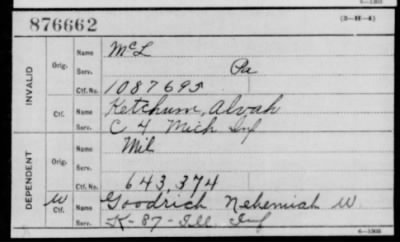 876662 (3—H—4)
INVALID
Orig. Name McL
Serv. Pa
Ctf. No. 1087695
Ctf. Name Ketchum, Alvah
Serv. C 4 Mich Inf
DEPENDENT
Orig. Name Mil
Serv.
Ctf. No. 643,374
W Ctf. Name Goodrich Nehemiah W.
Serv. K-87-Ill. Inf
6—1303